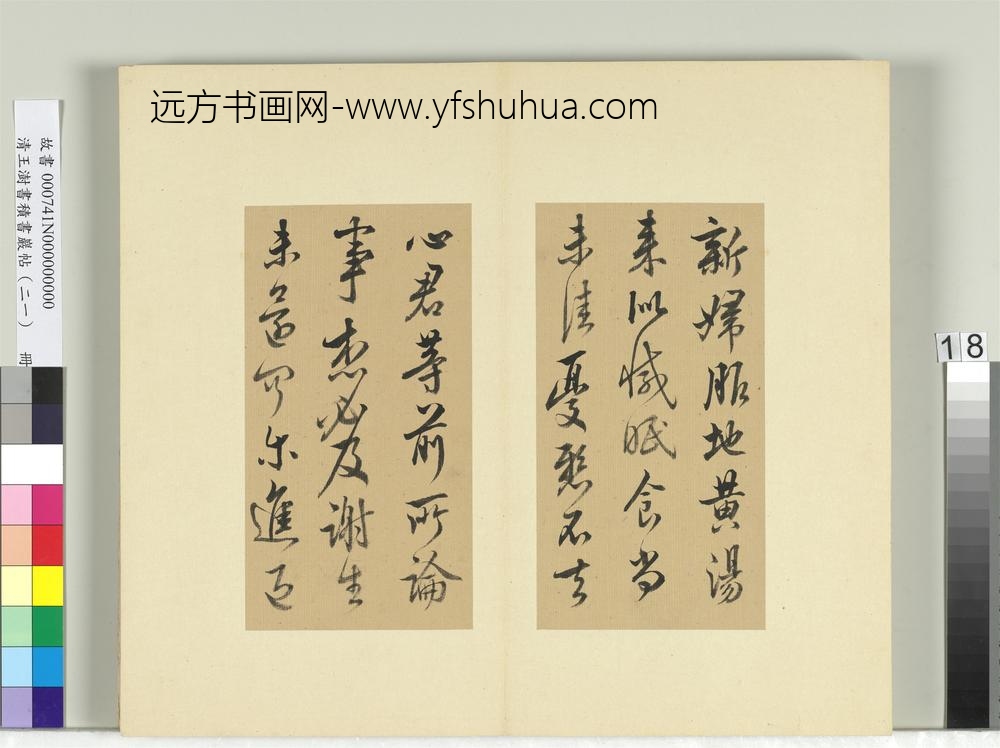 远方书画网-www.yfshuhua.com
新婦服地黃湯
来似減眠食尚
未佳憂懸不去
心君等前所論
事想必及謝生
未還可尔進退
故書 000741N000000000
清王澍書積書巖帖（二一） 冊
18